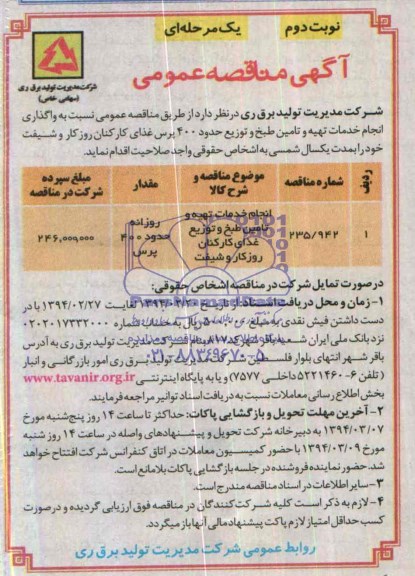 نوبت دوم
یک مرحله‌ای
آگهی مناقصه عمومی
شرکت مدیریت تولید برق ری
(سهامی خاص)
شرکت مدیریت تولید برق ری در نظر دارد از طریق مناقصه عمومی نسبت به واگذاری
انجام خدمات تهیه و تامین طبخ و توزیع حدود ۴۰۰ پرس غذای کارکنان روز کار و شیفت
خود را بمدت یکسال شمسی به اشخاص حقوقی واجد صلاحیت اقدام نماید.
ردیف
شماره مناقصه
موضوع مناقصه و شرح کالا
مقدار
مبلغ سپرده شرکت در مناقصه
۱
۲۳۵/۹۴۲
انجام خدمات تهیه و تامین طبخ و توزیع غذای کارکنان روز کار و شیفت
روزانه حدود ۴۰۰ پرس
۲۴۶,۰۰۰,۰۰۰
در صورت تمایل شرکت در مناقصه اشخاص حقوقی:
۱- زمان و محل دریافت اسناد: از تاریخ لغایت ۱۳۹۴/۰۲/۲۷ با در
دست داشتن فیش نقدی به مبلغ ریال به حساب شماره ۰۲۰۲۰۱۷۳۳۲۰۰۰
نزد بانک ملی ایران شعبه مدیریت تولید برق ری به آدرس
باقر شهر انتهای بلوار فلسطین شرکت مدیریت تولید برق ری امور بازرگانی و انبار
(تلفن ۶-۵۲۲۱۴۶۰ داخلی ۷۵۷۷) و یا به پایگاه اینترنتی www.tavanir.org.ir
بخش اطلاع رسانی معاملات نسبت به دریافت اسناد توانیر مراجعه فرمایند.
۲- آخرین مهلت تحویل و بازگشایی پاکات: حداکثر تا ساعت ۱۴ روز پنج‌شنبه مورخ
۱۳۹۴/۰۳/۰۷ به دبیرخانه شرکت تحویل و پیشنهادهای واصله در ساعت ۱۴ روز شنبه
مورخ ۱۳۹۴/۰۳/۰۹ با حضور کمیسیون معاملات در اتاق کنفرانس شرکت افتتاح خواهد
شد. حضور نماینده فروشنده در جلسه بازگشایی پاکات بلامانع است.
۳- سایر اطلاعات در اسناد مناقصه مندرج است.
۴- لازم به ذکر است کلیه شرکت کنندگان در مناقصه فوق ارزیابی گردیده و در صورت
کسب حداقل امتیاز لازم پاکت پیشنهاد مالی آنها باز میگردد.
روابط عمومی شرکت مدیریت تولید برق ری
۰۲۱-۸۸۳۴۹۶۷۰-۵